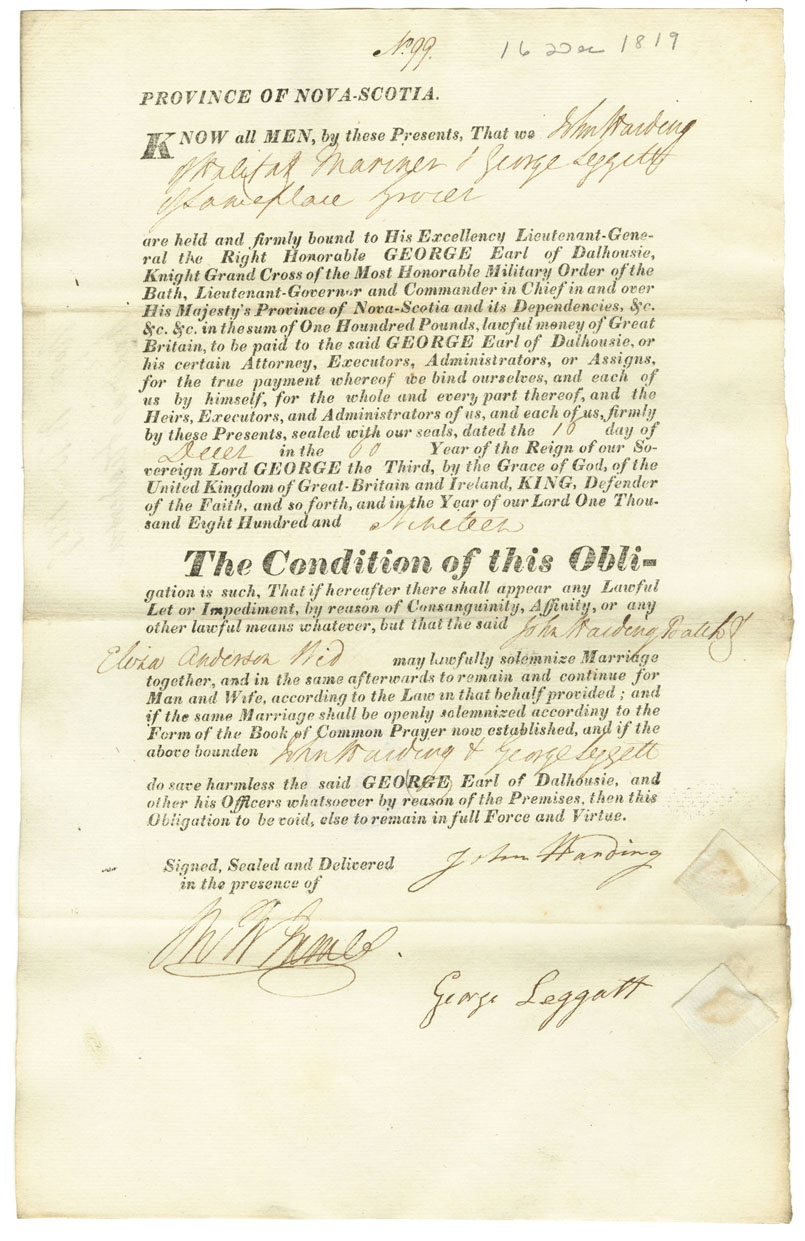 No. 99. 16 Dec 1819
PROVINCE OF NOVA-SCOTIA.
KNOW all MEN, by these Presents, That we John Harding
of Halifax Mariner & George Leggatt
of Same place Grocer
are held and firmly bound to His Excellency Lieutenant-Gene-
ral the Right Honorable GEORGE Earl of Dalhousie,
Knight Grand Cross of the Most Honorable Military Order of the
Bath, Lieutenant-Governor and Commander in Chief in and over
His Majesty's Province of Nova-Scotia and its Dependencies, &c.
&c. &c. in the sum of One Houndred Pounds, lawful money of Great
Britain, to be paid to the said GEORGE Earl of Dalhousie, or
his certain Attorney, Executors, Administrators, or Assigns,
for the true payment whereof we bind ourselves, and each of
us by himself, for the whole and every part thereof, and the
Heirs, Executors, and Administrators of us, and each of us, firmly
by these Presents, sealed with our seals, dated the 16 day of
Decer in the 60 Year of the Reign of our So-
vereign Lord GEORGE the Third, by the Grace of God, of the
United Kingdom of Great-Britain and Ireland, KING, Defender
of the Faith, and so forth, and in the Year of our Lord One Thou-
sand Eight Hundred and Nineteen
The Condition of this Obli-
gation is such, That if hereafter there shall appear any Lawful
Let or Impediment, by reason of Consanguinity, Affinity, or any
other lawful means whatever, but that the said John Harding Batch &
Eliza Anderson Wid may lawfully solemnize Marriage
together, and in the same afterwards to remain and continue for
Man and Wife, according to the Law in that behalf provided; and
if the same Marriage shall be openly solemnized accordiny to the
Form of the Book of Common Prayer now established, and if the
above bounden John Harding & George Leggatt
do save harmless the said GEORGE Earl of Dalhousie, and
other his Officers whatsoever by reason of the Premises, then this
Obligation to be void, else to remain in full Force and Virtue.
Signed, Sealed and Delivered John Harding
in the presence of
George Leggatt